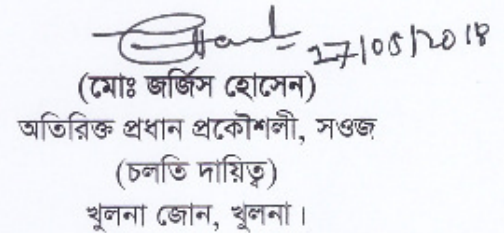 27/05/2018
(মোঃ জর্জিস হোসেন)
অতিরিক্ত প্রধান প্রকৌশলী, সওজ
(চলতি দায়িত্ব)
খুলনা জোন, খুলনা।